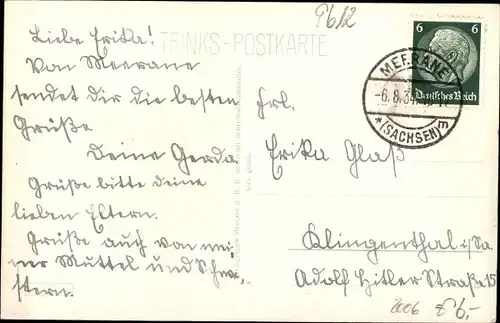 Pb12
TRINKS-POSTKARTE
Liebe Erika!
Von Meerane
sendet dir die besten
Grüße
Deine Gerda.
Grüße bitte deine
lieben Eltern.
Grüße auch von mei-
ner Muttel und Schwe-
stern.
6 6
Deutsches Reich
MEERANE
-6.8.34
* (SACHSEN) E
Frl.
Erika Glaß
Klingenthal i/Sa.
Adolf Hitler Straße 15
2006 6,-